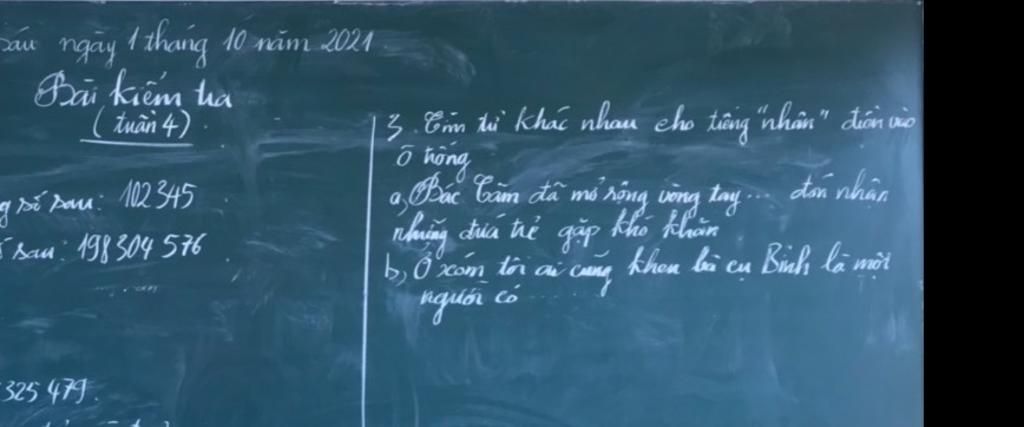 sáu ngày 1 tháng 10 năm 2021
Bài kiểm tra
(tuần 4)
g số sau: 102 345
số sau: 198 304 576
325 479.
3. Tìm từ khác nhau cho tiếng "nhân" điền vào
ô trống
a, Bác Tâm đã mở rộng vòng tay... đón nhận
những đứa trẻ gặp khó khăn
b, Ở xóm tôi ai cũng khen bà cụ Bình là một
người có